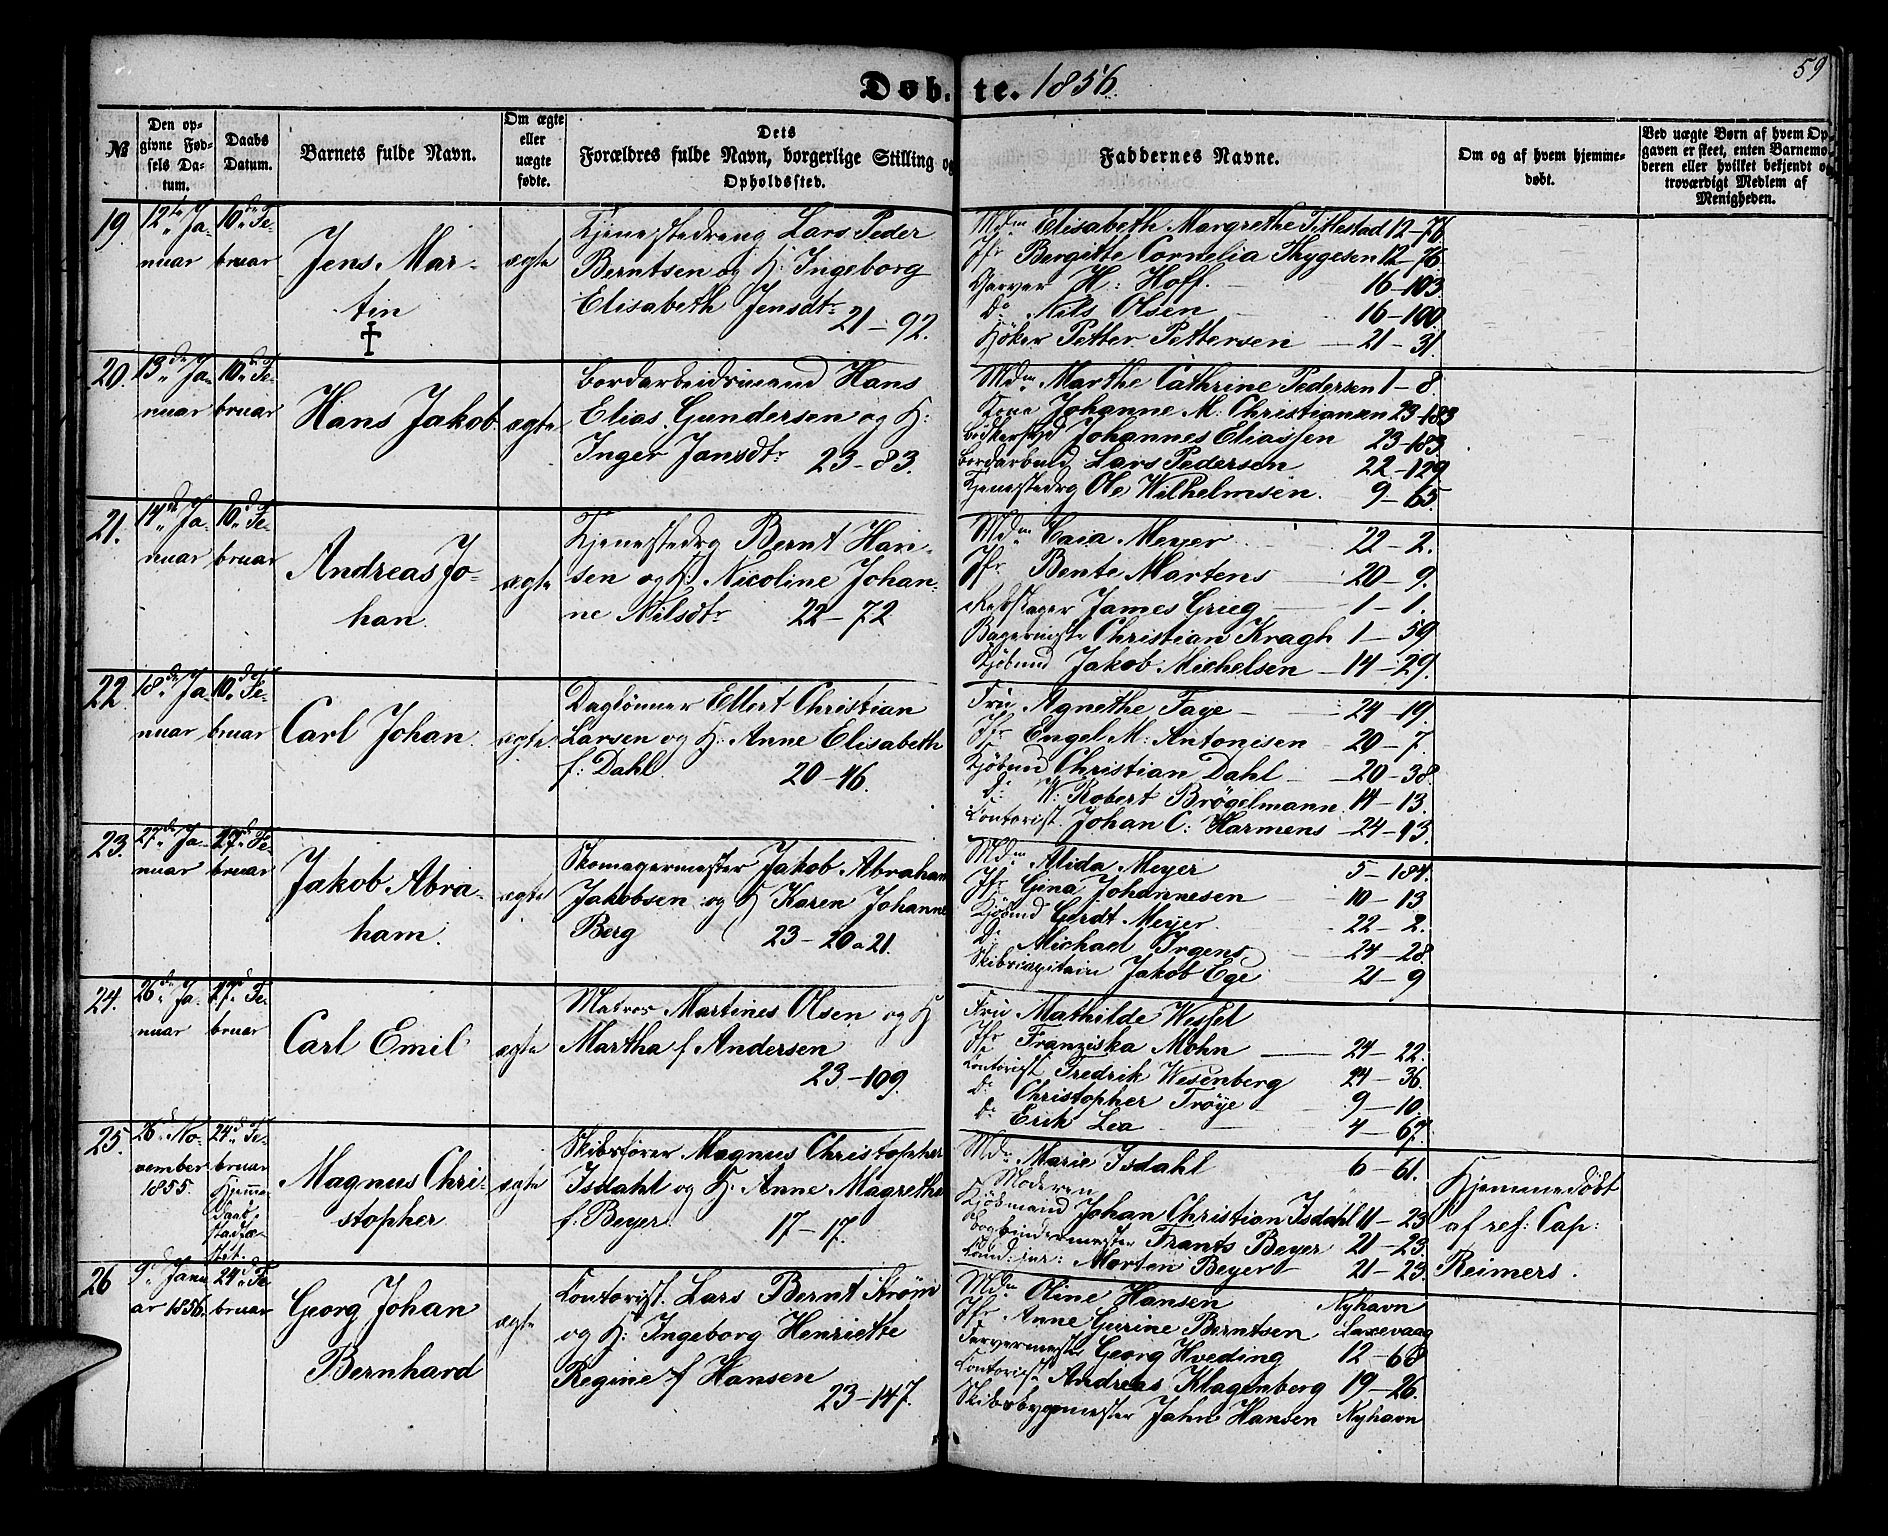 59
Døb-te. 1856
№
Den op-
givne Fød-
sels Da-
tum.
Daabs
Datum.
Barnets fulde Navn.
Om ægte
eller
uægte
fødte.
Dets
Forældres fulde Navn, borgerlige Stilling og
Opholdssted.
Faddernes Navne.
Om og af hvem hjemme-
døbt.
Ved uægte Børn af hvem Op-
gaven er skeet, enten Barnemo-
deren eller hvilket bekjendt og
troværdigt Medlem af
Menigheden.
19.
12te Ja-
nuar
10de Fe-
bruar
Jens Mar-
tin
†
ægte
Tjenestedreng Lars Peder
Berntsen og H: Ingeborg
Elisabeth Jensdtr
21-92.
Mdm Elisabeth Margrethe Tittestad 12-76
Jfr Bergitte Cornelia Thygesen 12-76
Garver H: Hoff. 16-103.
Do Nils Olsen 16-100
Høker Petter Pettersen 21-31.
20.
13de Ja-
nuar
10de Fe-
bruar
Hans Jakob
ægte
Bordarbeidsmand Hans
Elias Gundersen og H:
Inger Jansdtr 23-83.
Mdm Marthe Cathrine Pedersen 1-8
Kone Johanne M: Christiansen 23-183
Johannes Eliassen 23-183
Lars Pedersen 22-129
Tjenestedrg Ole Wilhelmsen. 9-65.
21.
14de Ja-
nuar
10de Fe-
bruar
Andreas Jo-
han.
ægte
Tjenestedrg Bernt Han-
sen og H: Nicoline Johan-
ne Nilsdtr 22-72
Mdm Caia Meyer 22-2.
Jfr Bente Martens 20-9.
Rebslager James Grieg 1-1.
Bagermester Christian Kragh 1-59
Kjøbmd Jakob Michelsen 14-29.
22
18de Ja-
nuar
10de Fe-
bruar
Carl Johan.
ægte.
Daglønner Ellert Christian
Larsen og H: Anne Elisabeth
f: Dahl. 20-46.
Fru Agnethe Faye 24-19.
Jfr Engel M: Antonisen 20-7.
Kjøbmd Christian Dahl 20-38.
do W: Robert Brøgelmann 14-13.
Contorist Johan C: Harmens 24-93.
23.
27de Ja-
nuar
17de Fe-
bruar
Jakob Abra-
ham.
ægte
Skomagermester Jakob Abraham
Jakobsen og H Karen Johanne
Berg 23-20a21.
Mdm Alida Meyer 5-184.
Jfr Gina Johannesen 10-13
Kjøbmd Gerdt Meyer 22-2.
do Michael Irgens 24-28
Skibscapitain Jakob Ege 21-9
24.
26de Ja-
nuar
17de Fe-
bruar
Carl Emil
ægte
Matros Martines Olsen og H
Martha f Andersen
23-109.
Fru Mathilde Wessel
Jfr Franziska Mohn 24-22.
Contorist Fredrik Wesenberg 24-36.
do Christopher Trøye 9-10.
do Erik Lea 4-67.
25.
26d No-
vember
1855.
24d Fe-
bruar
Hjemme
daab
stadfæ-
stet.
Magnus Chri-
stopher
ægte
Skibsfører Magnus Christopher
Isdahl og H: Anne Magrethe
f: Beyer. 17-17.
Mdm Marie Isdahl 6-61.
Moderen
Kjøbmand Johan Christian Isdahl 11-23
Bogbindermester Frants Beyer 21-23.
Cand: jur: Morten Beyer 21-23.
Hjemmedøbt
af res: Cap:
Reimers.
26
9d Janu
ar 1856.
24d Fe
bruar
Georg Johan
Bernhard
ægte
Contorist Lars Bernt Strøm
og H: Ingeborg Henriette
Regine f Hansen
23-147.
Mdm Oline Hansen Nyhavn
Jfr Anne Gurine Berntsen Laxevaag
Farvermester Georg Hveding 12-68
Contorist Andreas Klagenberg 19-26.
Skibsbygmester Jahn Hansen Nyhavn